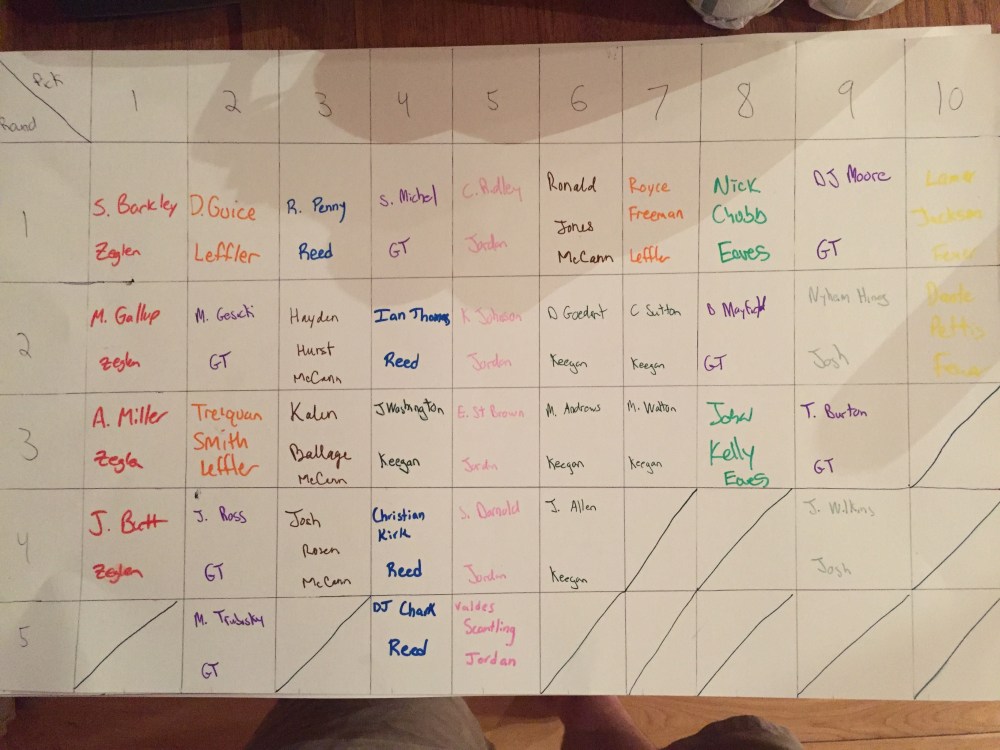 Pick
Round
1 2 3 4 5 6 7 8 9 10
1
S. Barkley
Zeglen
D. Guice
Leffler
R. Penny
Reed
S. Michel
GT
C. Ridley
Jordan
Ronald
Jones
McCann
Royce
Freeman
Leffler
Nick
Chubb
Eaves
DJ Moore
GT
Lamar
Jackson
2
M. Gallup
Zeglen
M. Gesicki
GT
Hayden
Hurst
McCann
Ian Thomas
Reed
K Johnson
Jordan
D Goedert
Keegan
C Sutton
Keegan
B Mayfield
GT
Nyham Hines
Josh
Dante
Pettis
3
A. Miller
Zeglen
Tre'quan
Smith
Leffler
Kalen
Ballage
McCann
J Washington
Keegan
E. St Brown
Jordan
M. Andrews
Keegan
M. Walton
Keegan
John
Kelly
Eaves
T. Burton
GT
4
J. Butt
Zeglen
J. Ross
GT
Josh
Rosen
McCann
Christian
Kirk
Reed
S. Darnold
Jordan
J. Allen
Keegan
J. Wilkins
Josh
5
M. Trubisky
GT
DJ Chark
Reed
Valdes
Scantling
Jordan